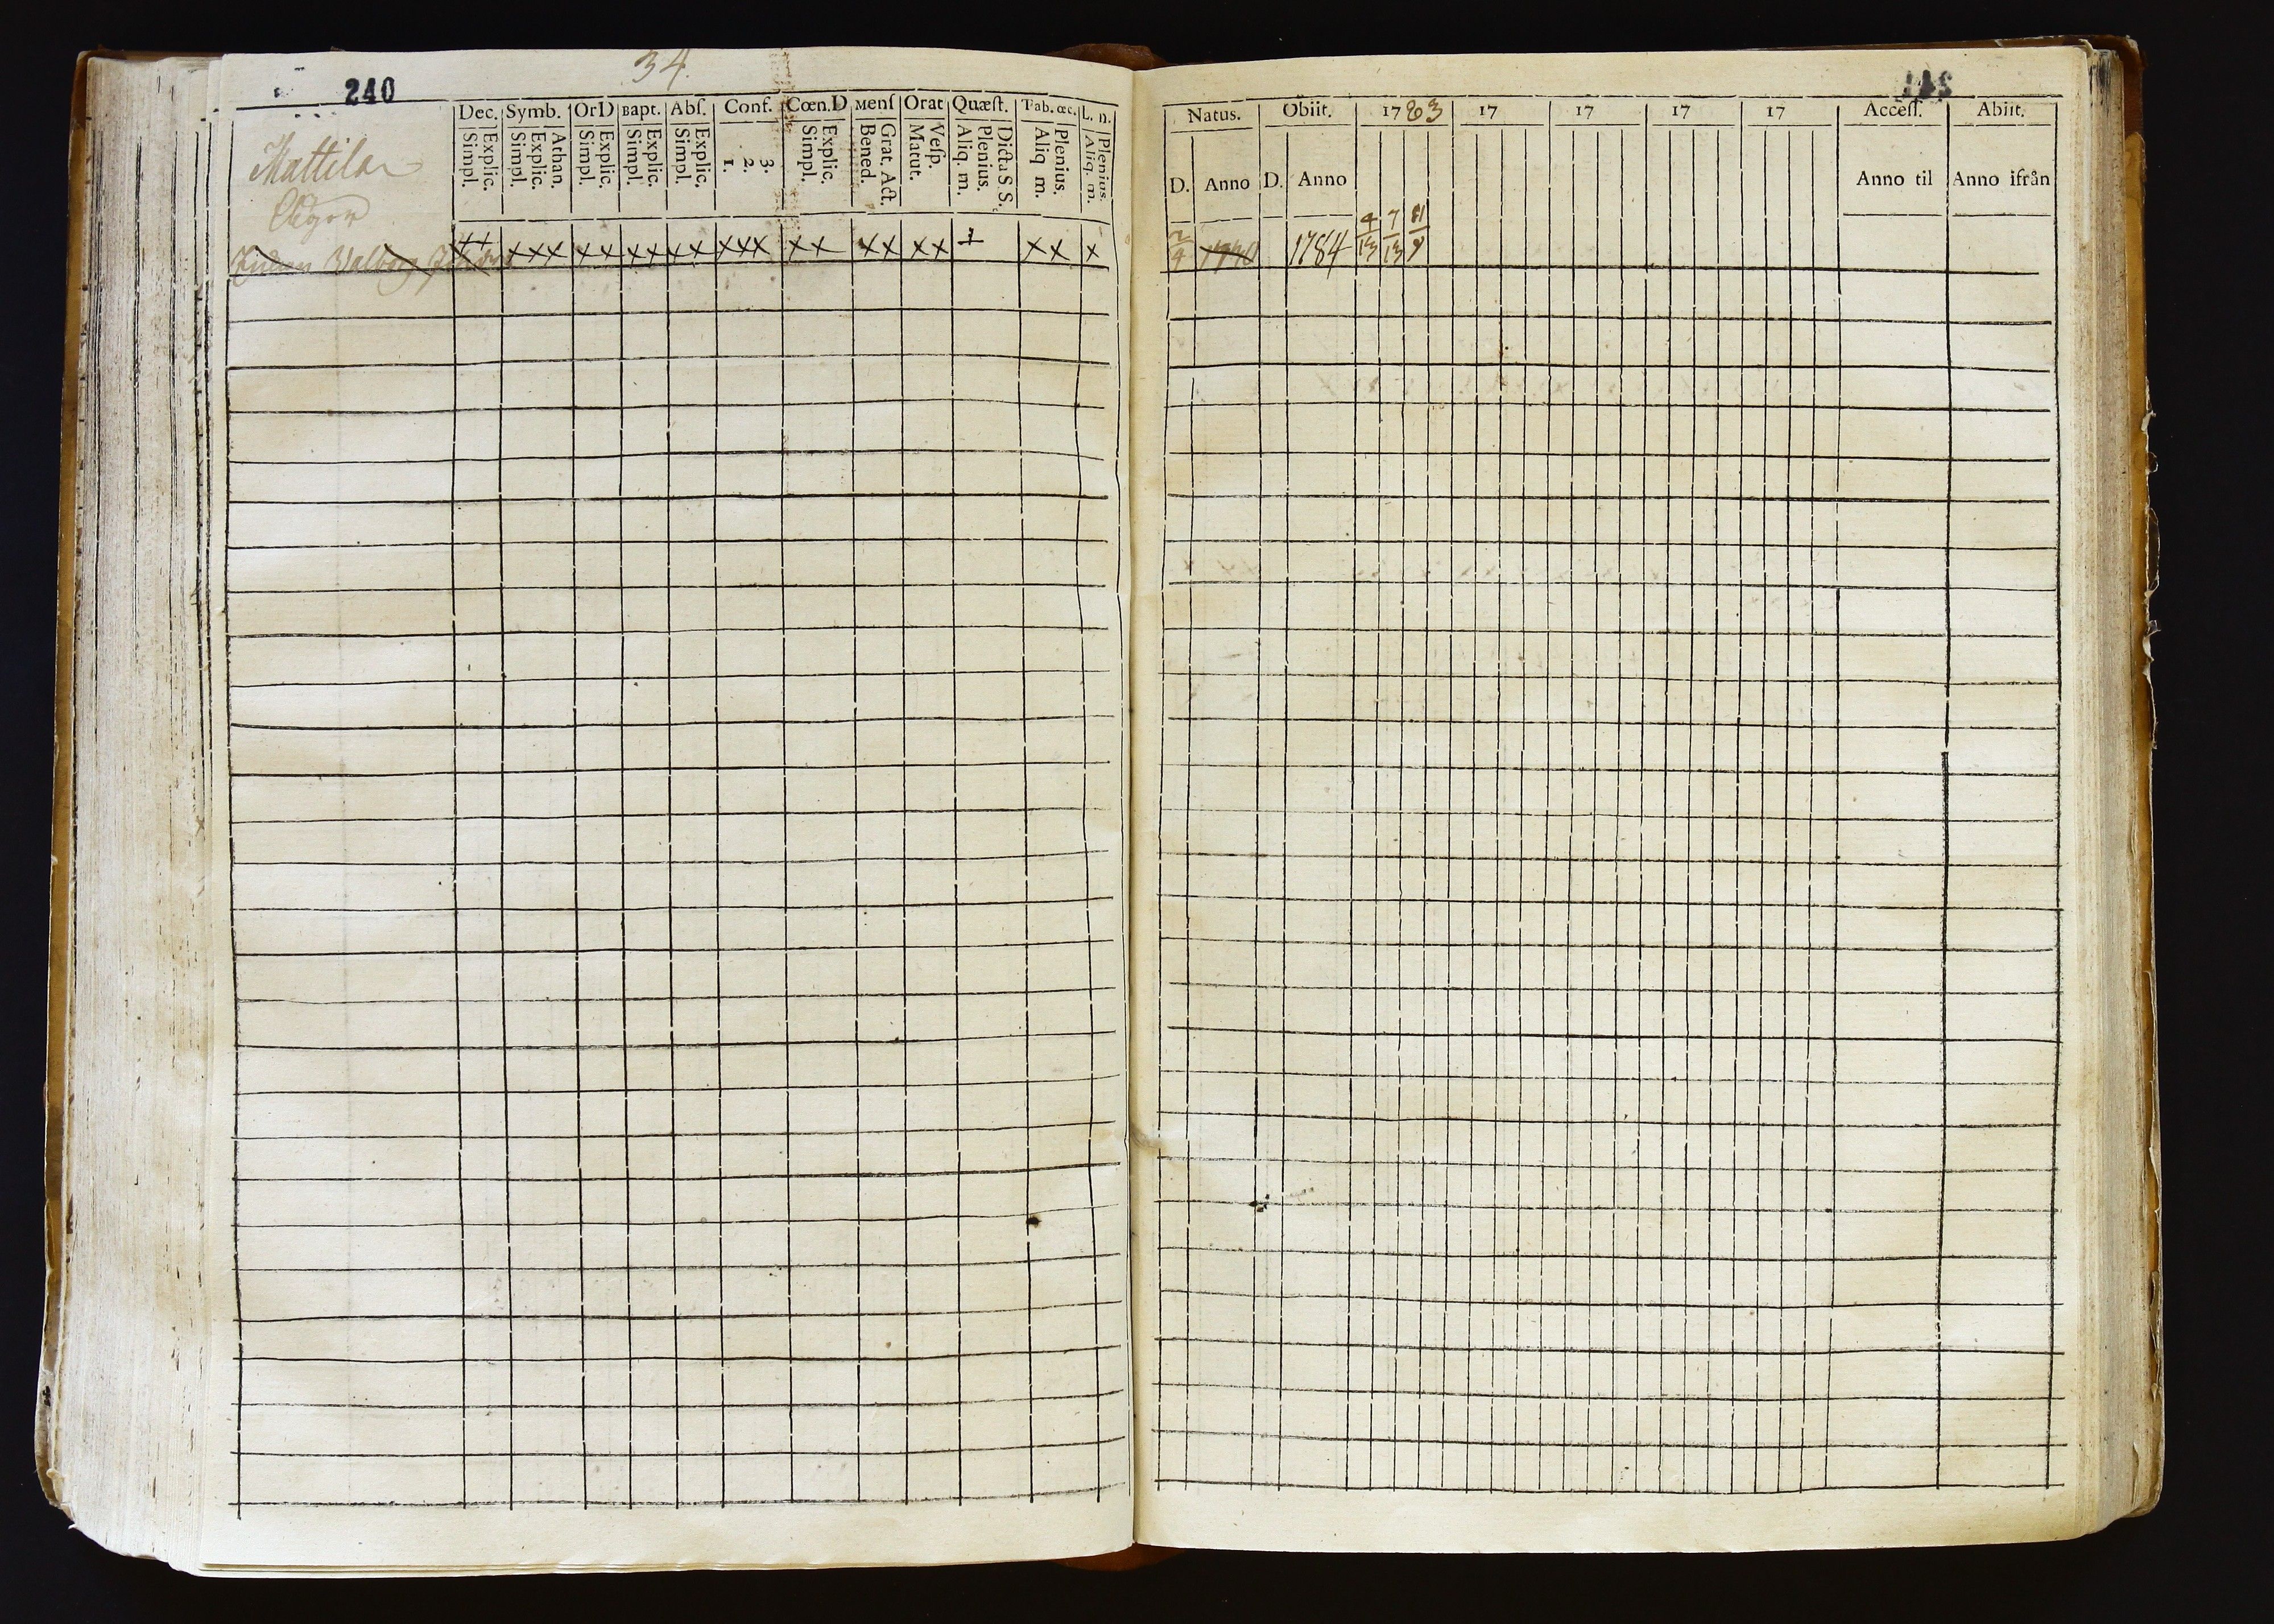 240
34.
Dec. Symb. OrD Bapt. Abſ. Conf. Cœn.D Menſ Orat Quæſt. Tab. œc. L. n.
Explic. Simpl. Athan. Explic. Simpl. Explic. Simpl. Explic. Simpl. Explic. Simpl. 3. 2. 1. Explic. Simpl. Grat. Act. Bened. Veſp. Matut. Dicta S S. Plenius. Aliq. m. Plenius. Aliq m. Plenius. Aliq. m.
Mattila
Valborg
xx xxx xx xx xx xxx xx xx xx + xx x
Natus. Obiit. 1783 17 17 17 17 Acceſſ. Abiit.
D. Anno D. Anno Anno til Anno ifrån
1784 4/13 7/13 11/9